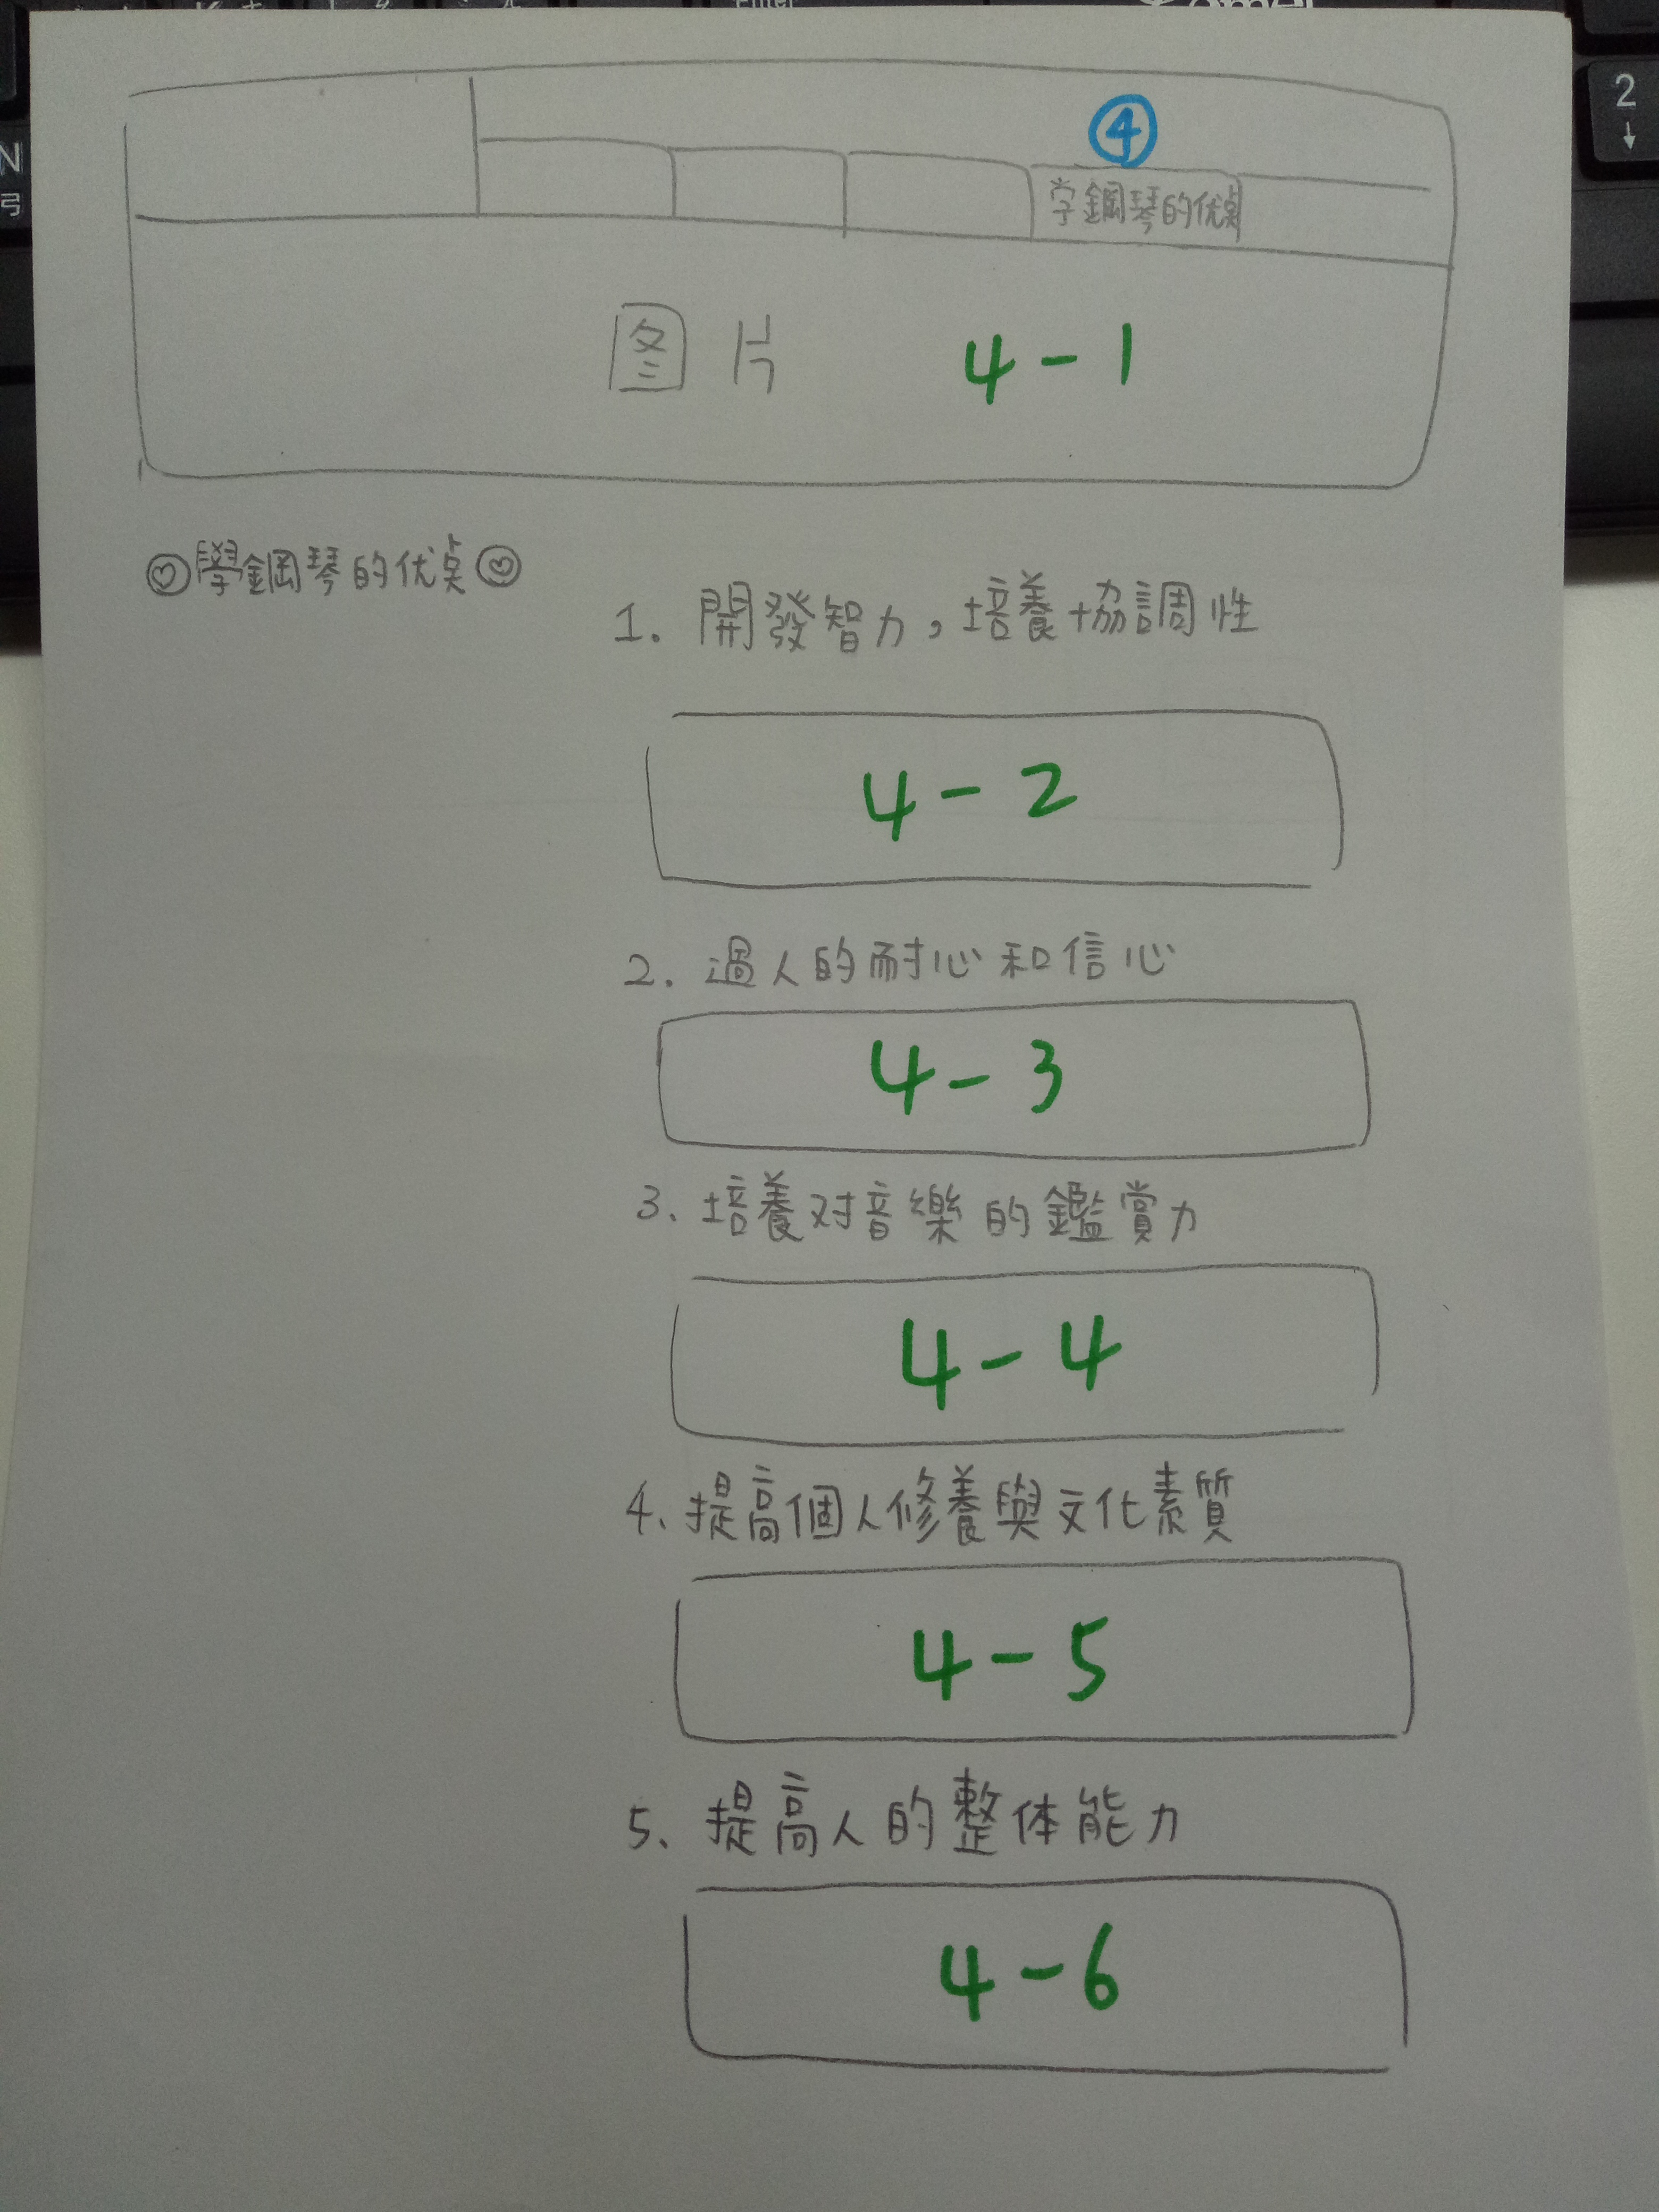 ④
学鋼琴的优桌
图片 4-1
学鋼琴的优桌
1. 開發智力，培養協調性
4-2
2. 過人的耐心和信心
4-3
3、培養对音樂的鑑賞力
4-4
4、提高個人修養與文化素質
4-5
5、提高人的整体能力
4-6
N
2
↓